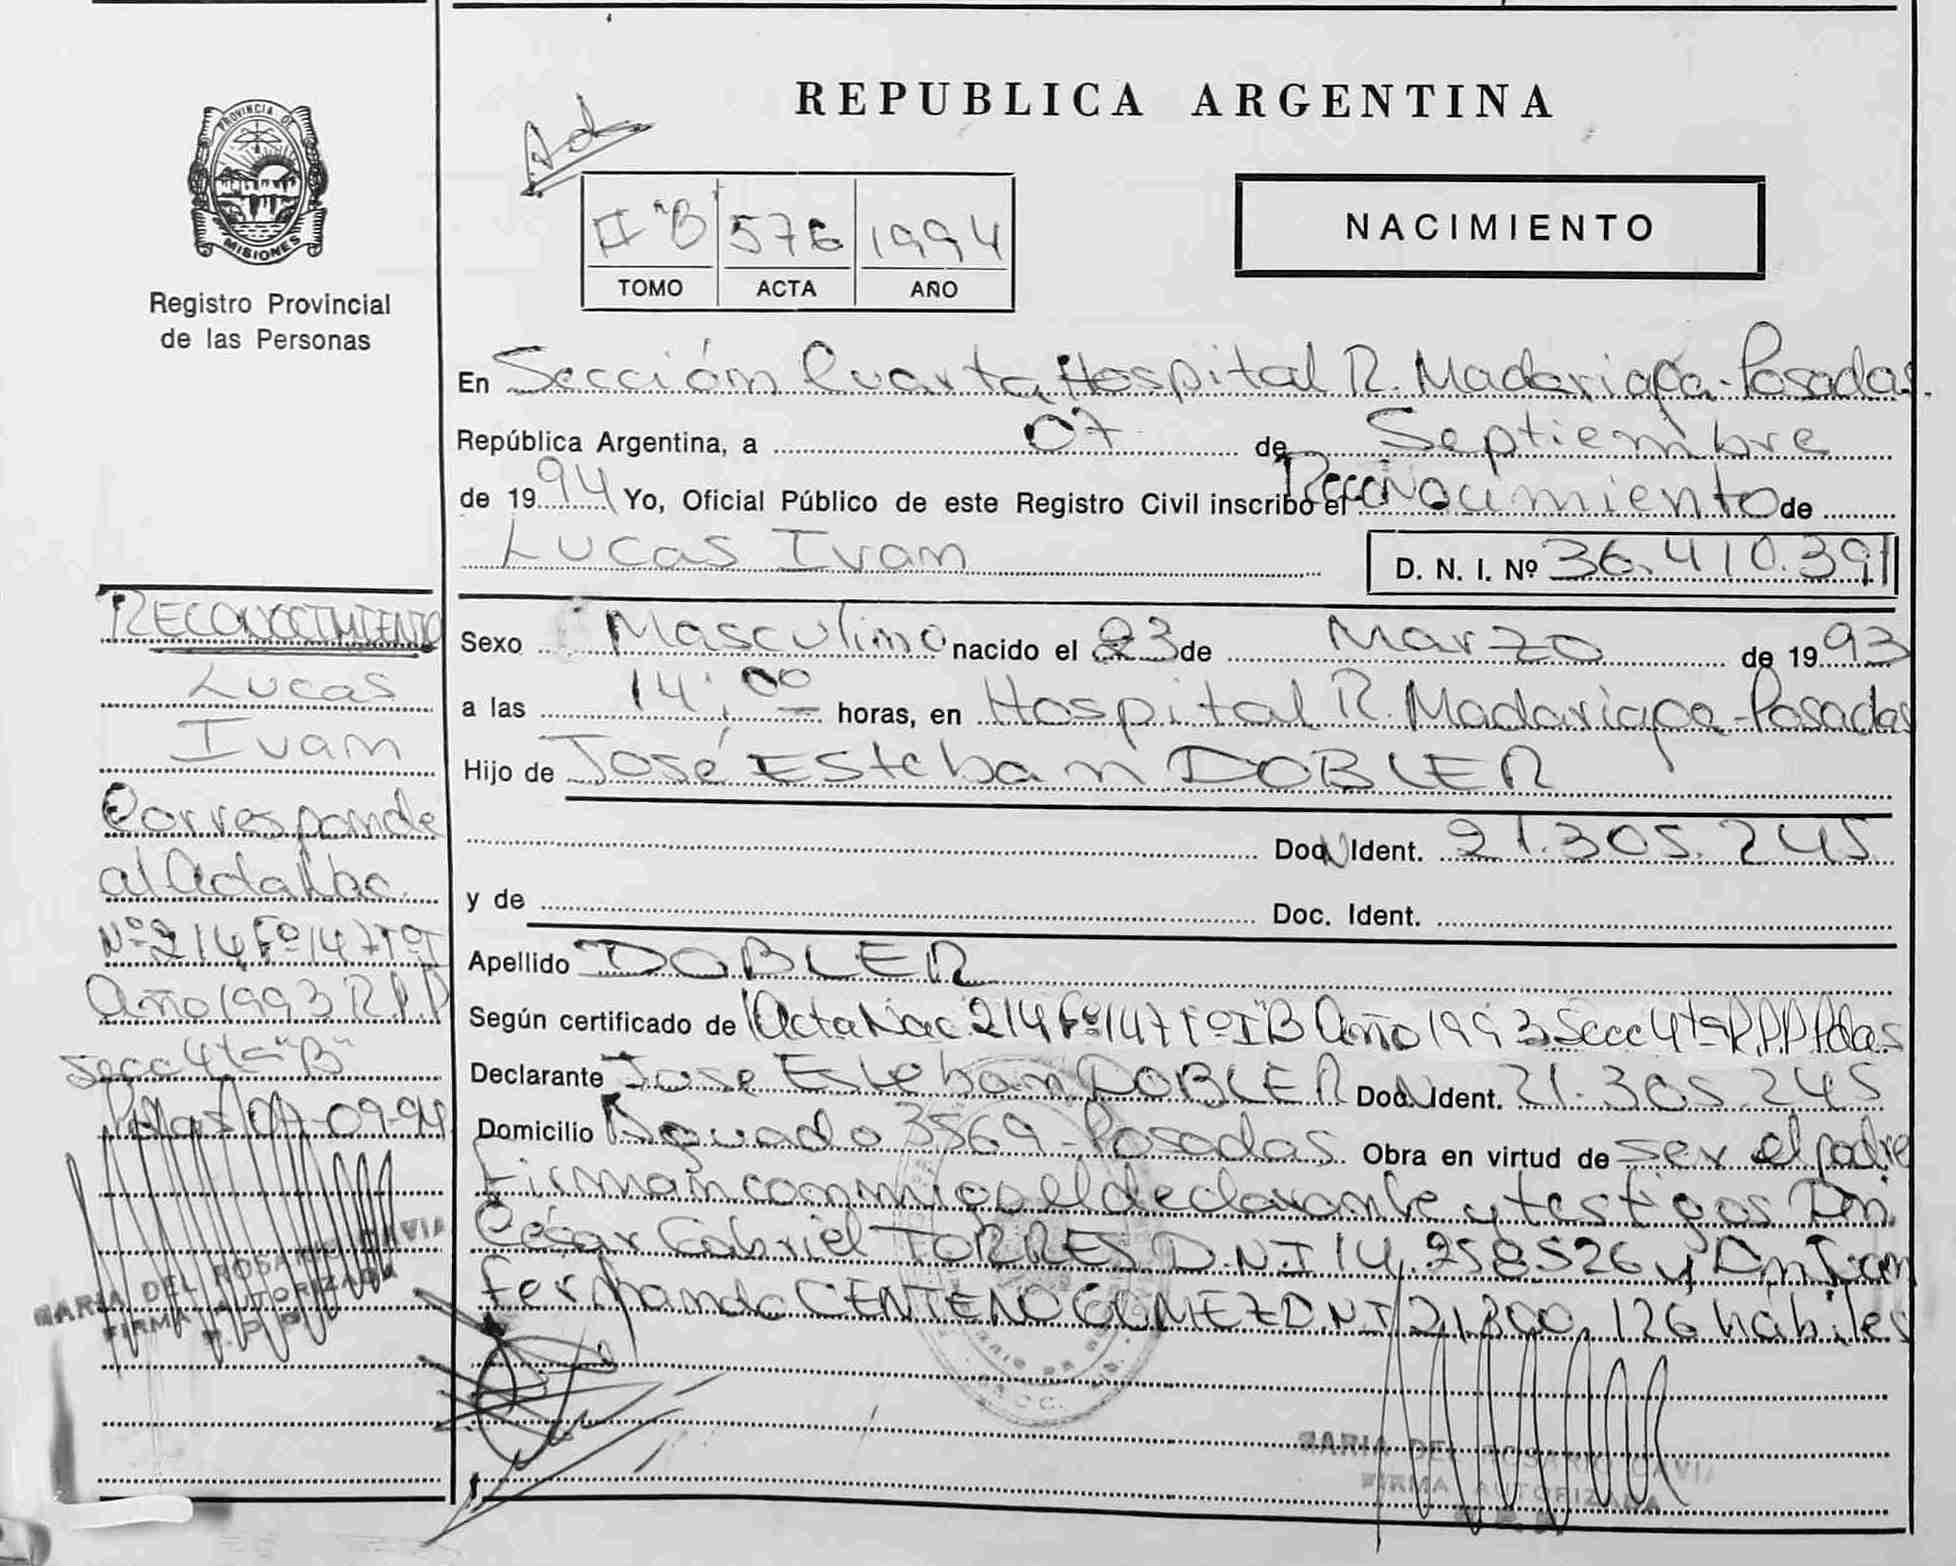 REPUBLICA ARGENTINA
PROVINCIA DE
MISIONES
Registro Provincial
de las Personas
II "B" 576 1994
TOMO ACTA AÑO
NACIMIENTO
En Sección Cuarta Hospital R. Madariaga - Posadas.
República Argentina, a 07 de Septiembre
de 1994 Yo, Oficial Público de este Registro Civil inscribo el Reconocimiento de
Lucas Ivan D. N. I. Nº 36.410.391
Sexo Masculino nacido el 23 de Marzo de 1993
a las 14:00 horas, en Hospital R. Madariaga - Posadas
Hijo de José Esteban DOBLER
Doc. N Ident. 21.305.245
y de Doc. Ident.
Apellido DOBLER
Según certificado de Acta Nac 214 Fº 147 Tº I"B Año 1993 Secc 4ta R.P.P Pdas
Declarante Jose Esteban DOBLER Doc. N Ident. 21.305.245
Domicilio Aguado 3569 - Posadas. Obra en virtud de ser el padre
Firman conmigo el declarante y testigos Dn.
César Gabriel TORRES D.N.I 14.258526 y Dn Ivan
Fernando CENTENO GOMEZ D.N.I 21.300.126 hábiles
MARIA DEL ROSARIO GAVIA
FIRMA AUTORIZADA
R. P. P.
RECONOCIMIENTO
Lucas
Ivan
Corresponde
al Acta Nac.
Nº 214 Fº 147 Tº I
Año 1993 R.P.P
Secc 4ta "B"
Pdas 07-09-94
MARIA DEL ROSARIO GAVIA
FIRMA AUTORIZADA
R. P. P.